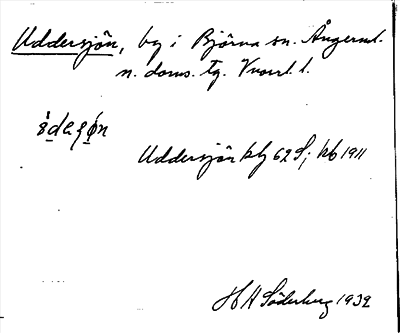 Uddersjön, by i Björna sn. Ångerml.
n. doms. tg. Väst. l.
Uddersjön kbj 62 S; kb 1911
H H Söderberg 1932